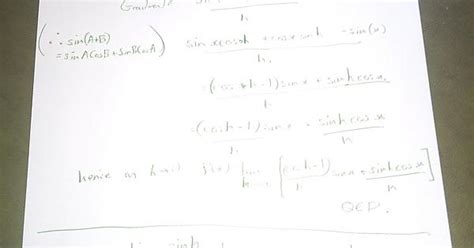 (Gradient)
(∴ sin(A+B)
= sinAcosB + sinBcosA)
sinxcosh + cosxsinh - sin(x)
h
= (cosh-1)sinx + sinhcosx
h
= (cosh-1)sinx + sinhcosx
h h
hence as h→0 f'(x) lim [(cosh-1) sinx + sinhcosx]
h h
QED.
sinh